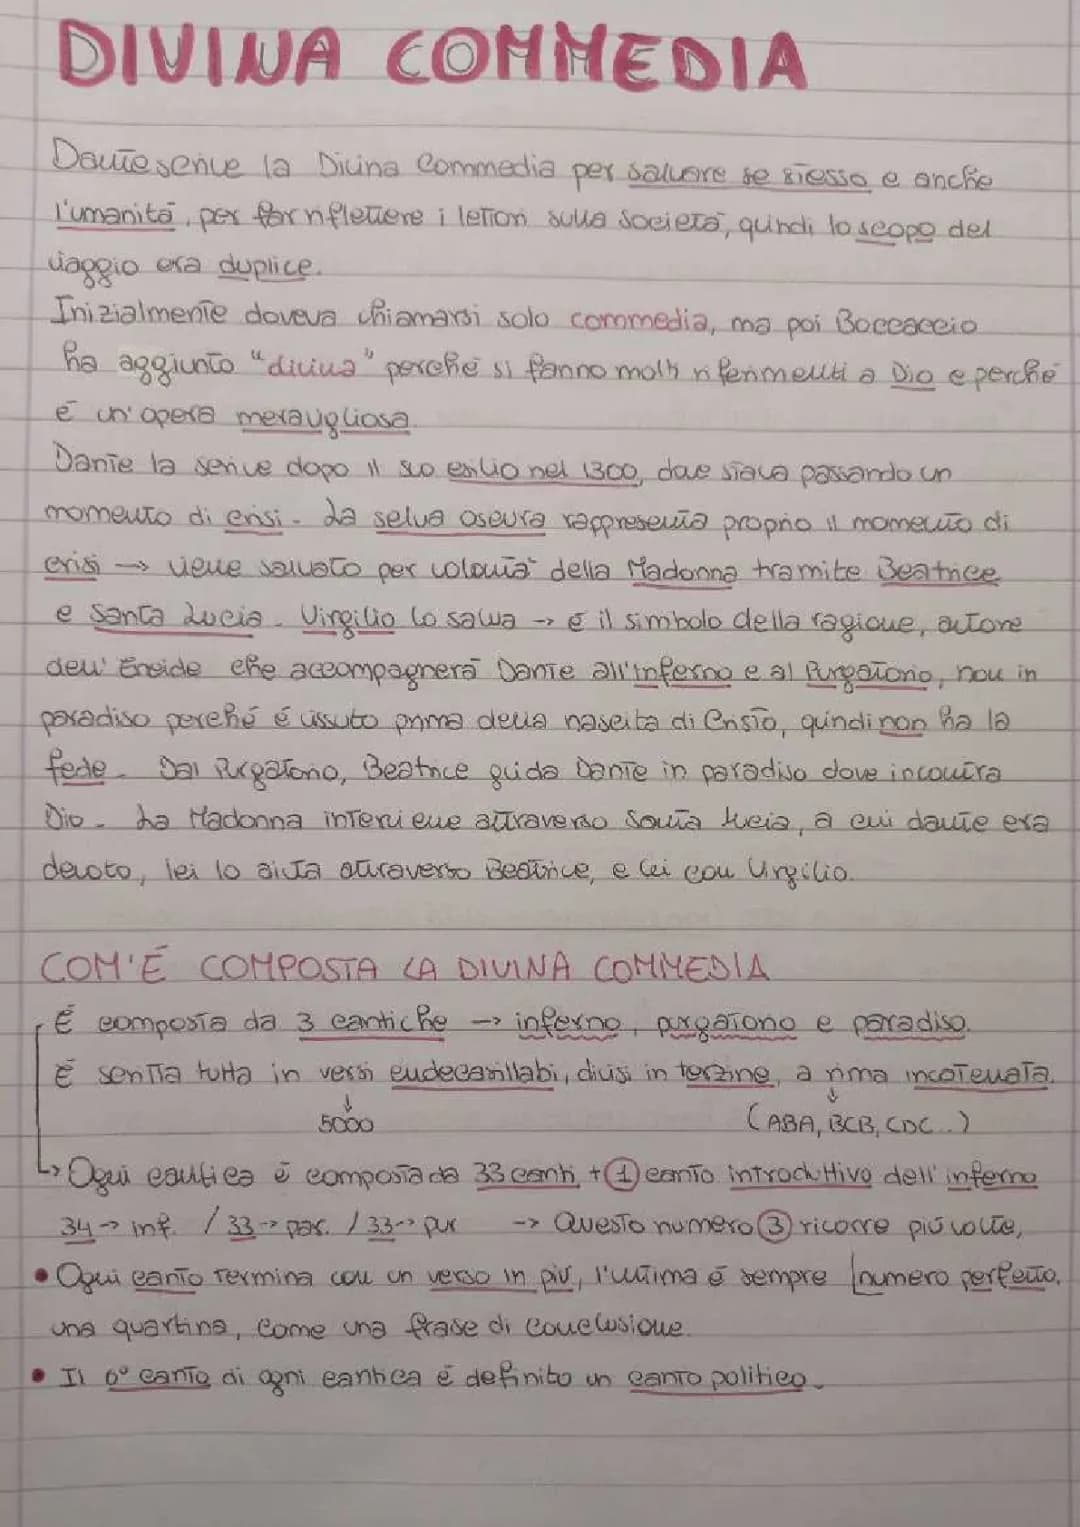 DIVINA COMMEDIA
Dante scrive la Divina Commedia per salvare se stesso e anche
l'umanità, per far riflettere i lettori sulla società, quindi lo scopo del
viaggio era duplice.
Inizialmente doveva chiamarsi solo commedia, ma poi Boccaccio
ha aggiunto "divina" perché si fanno molti riferimenti a Dio e perché
è un'opera meravigliosa.
Dante la scrive dopo il suo esilio nel 1300, dove stava passando un
momento di crisi. La selva oscura rappresenta proprio il momento di
crisi → viene salvato per volontà della Madonna tramite Beatrice
e Santa Lucia. Virgilio lo salva → è il simbolo della ragione, autore
dell'Eneide che accompagnerà Dante all'inferno e al Purgatorio, non in
paradiso perché è vissuto prima della nascita di Cristo, quindi non ha la
fede. Dal Purgatorio, Beatrice guida Dante in paradiso dove incontra
Dio. La Madonna interviene attraverso Santa Lucia, a cui dante era
devoto, lei lo aiuta attraverso Beatrice, e lei con Virgilio.
COM'È COMPOSTA LA DIVINA COMMEDIA
È composta da 3 cantiche → inferno, purgatorio e paradiso.
È scritta tutta in versi endecasillabi, divisi in terzine, a rima incatenata.
↓ 5000 ↓ (ABA, BCB, CDC...)
↳ Ogni cantica è composta da 33 canti + 1 canto introduttivo dell'inferno
34 → inf. / 33 → par. / 33 → pur → Questo numero 3 ricorre più volte,
• Ogni canto termina con un verso in più, l'ultima è sempre numero perfetto.
una quartina, come una frase di conclusione.
• Il 6° canto di ogni cantica è definito un canto politico.